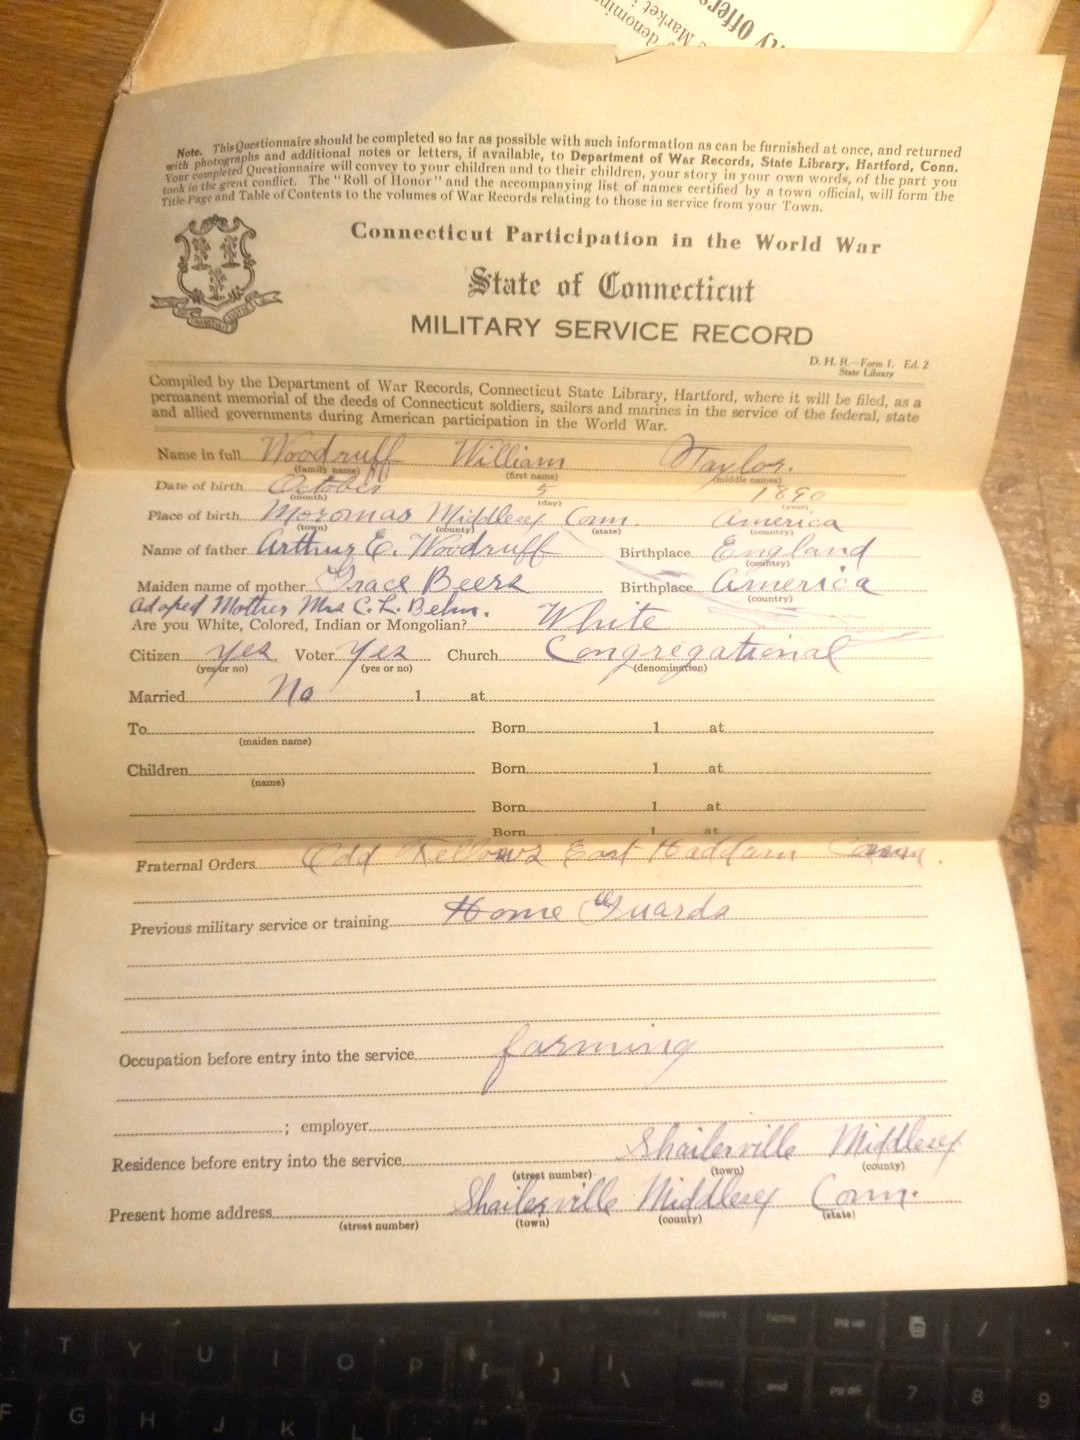 Note. This Questionnaire should be completed so far as possible with such information as can be furnished at once, and returned
with photographs and additional notes or letters, if available, to Department of War Records, State Library, Hartford, Conn.
Your completed Questionnaire will convey to your children and to their children, your story in your own words, of the part you
took in the great conflict. The "Roll of Honor" and the accompanying list of names certified by a town official, will form the
Title Page and Table of Contents to the volumes of War Records relating to those in service from your Town.
Connecticut Participation in the World War
State of Connecticut
MILITARY SERVICE RECORD
D. H. R.—Form 1. Ed. 2
State Library
Compiled by the Department of War Records, Connecticut State Library, Hartford, where it will be filed, as a
permanent memorial of the deeds of Connecticut soldiers, sailors and marines in the service of the federal, state
and allied governments during American participation in the World War.
Name in full Woodruff William Taylor.
(family name) (first name) (middle names)
Date of birth October 5 1890
(month) (day) (year)
Place of birth Moromas Middlesex Conn. America
(town) (county) (state) (country)
Name of father Arthur E. Woodruff Birthplace England
(country)
Maiden name of mother Grace Beers Birthplace America
(country)
Adoped Mother Mrs C. L. Behn.
Are you White, Colored, Indian or Mongolian? White
Citizen yes Voter Yes Church Congregational
(yes or no) (yes or no) (denomination)
Married No 1 at
To Born 1 at
(maiden name)
Children Born 1 at
(name)
Born 1 at
Born 1 at
Fraternal Orders Odd Fellows East Haddam Conn.
Previous military service or training Home Guards
Occupation before entry into the service farming
; employer
Residence before entry into the service Shailerville Middlesex
(street number) (town) (county)
Present home address Shailerville Middlesex Conn.
(street number) (town) (county) (state)
T Y U I O P { [ } ] | \ delete end pg dn 7 8 9
F G H J K L
home pg up /